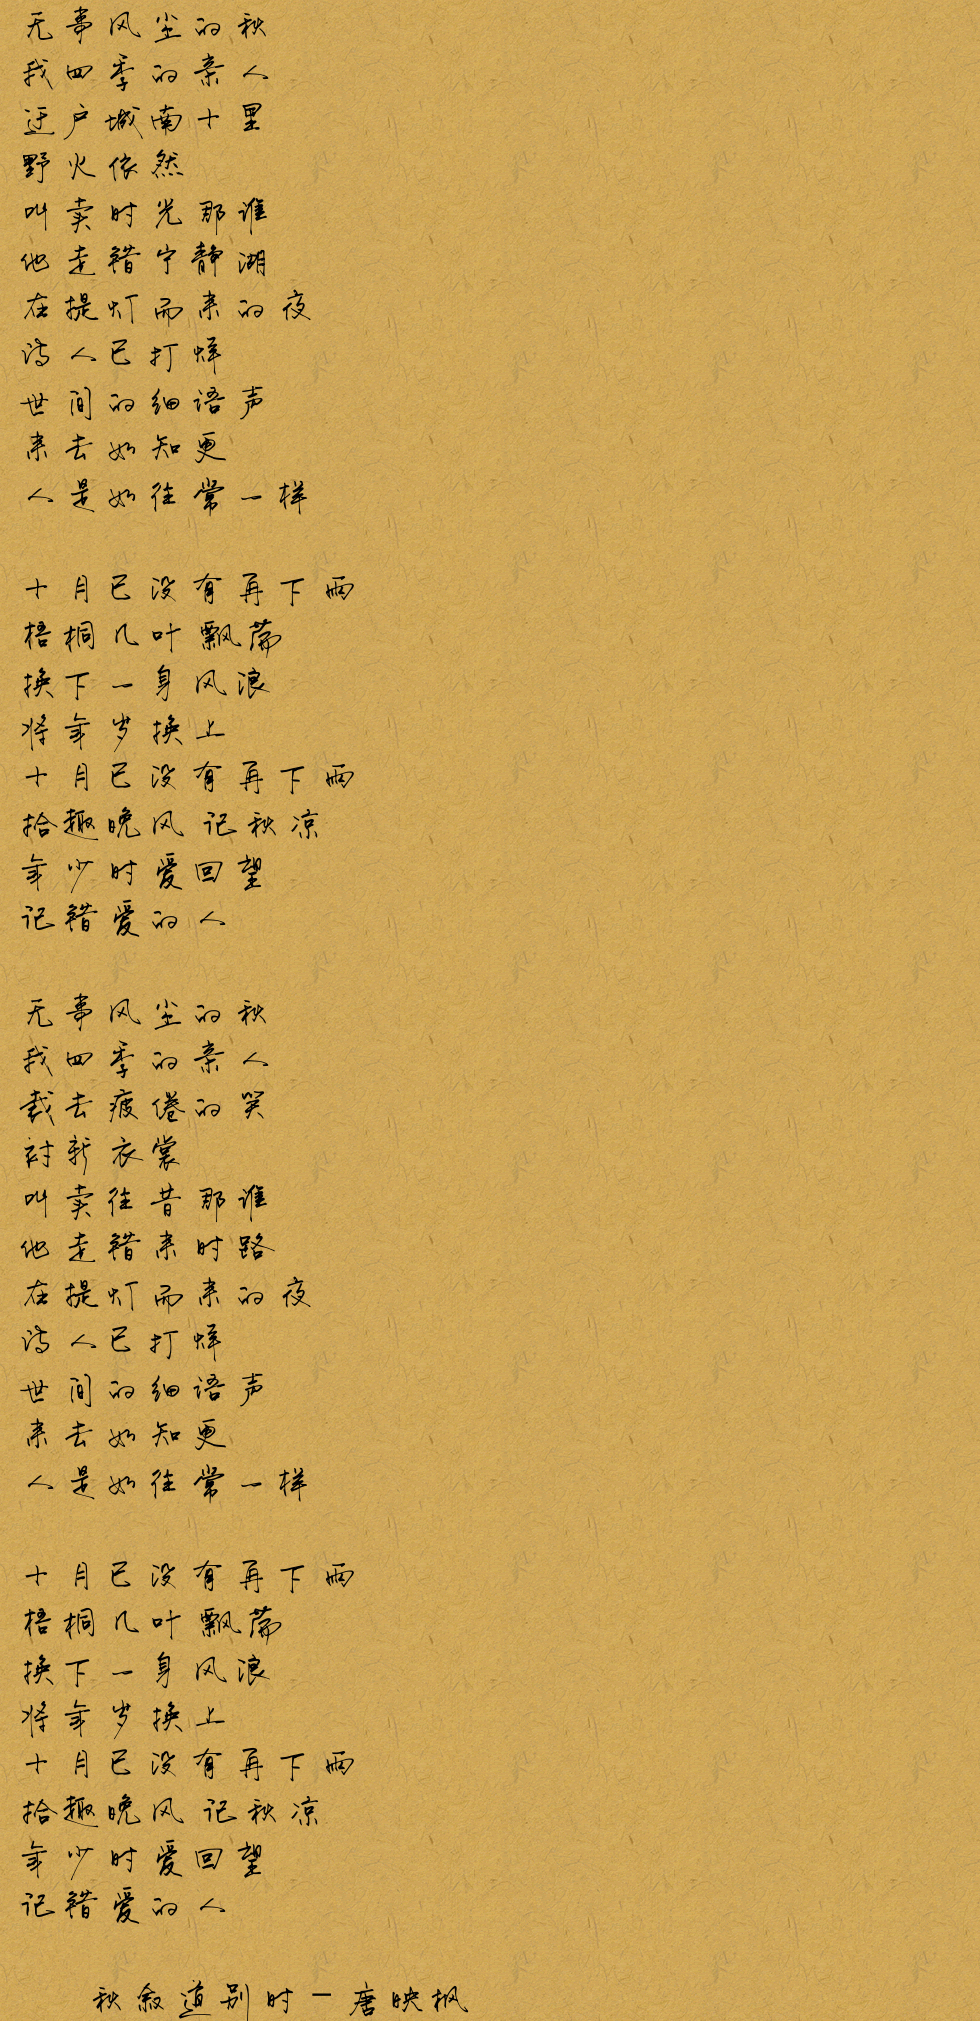 无事风尘的秋
我四季的亲人
迂户城南十里
野火依然
叫卖时光那谁
他走错宁静湖
在提灯而来的夜
诗人已打烊
世间的细语声
来去如知更
人是如往常一样
十月已没有再下雨
梧桐几叶飘荡
换下一身风浪
将年岁换上
十月已没有再下雨
拾趣晚风 记秋凉
年少时爱回望
记错爱的人
无事风尘的秋
我四季的亲人
载去疲倦的笑
衬新衣裳
叫卖往昔那谁
他走错来时路
在提灯而来的夜
诗人已打烊
世间的细语声
来去如知更
人是如往常一样
十月已没有再下雨
梧桐几叶飘荡
换下一身风浪
将年岁换上
十月已没有再下雨
拾趣晚风 记秋凉
年少时爱回望
记错爱的人
秋叙道别时一唐映枫